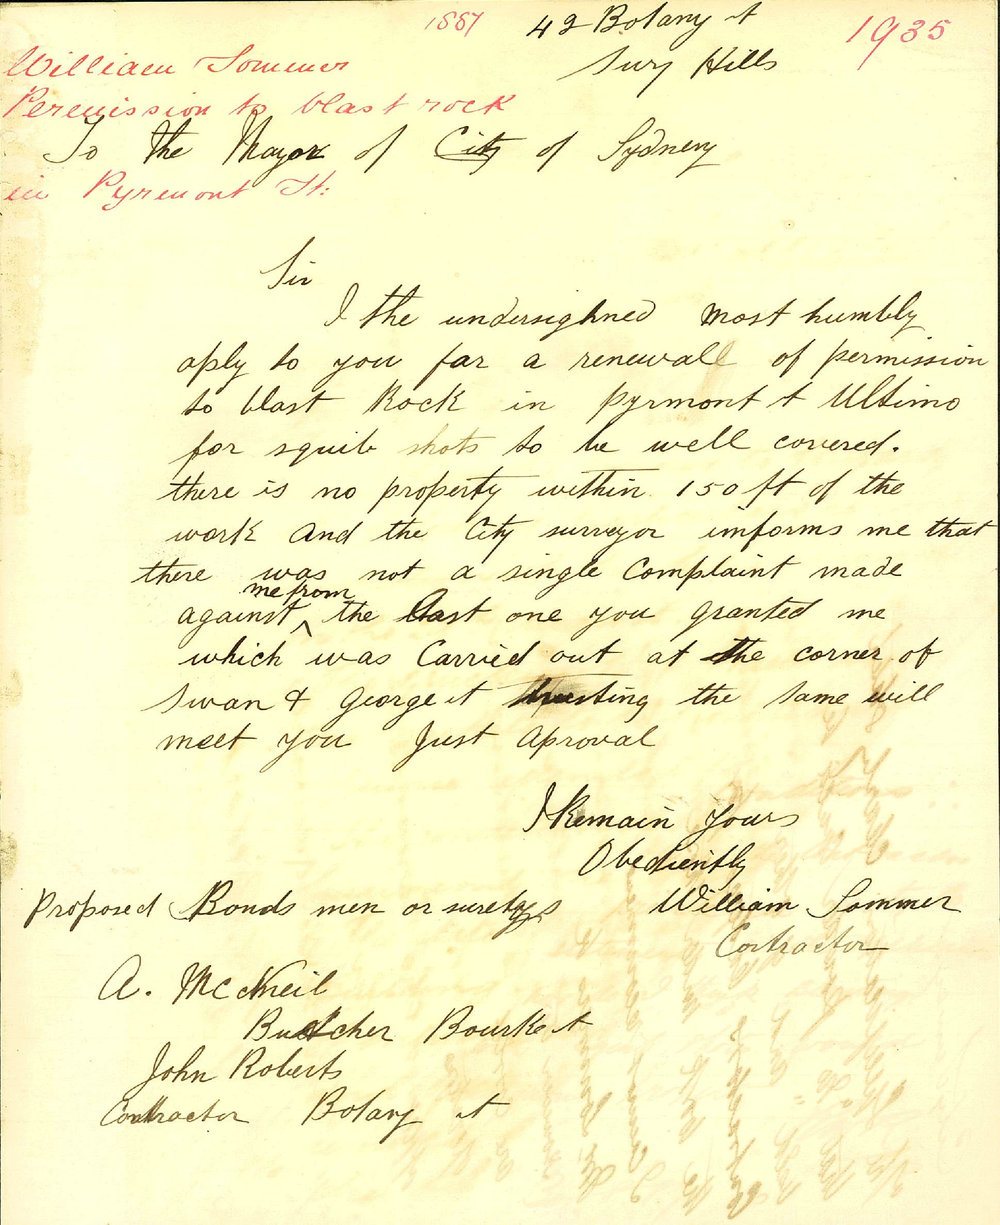 1887
42 Botany st
1935
Sury Hills
William Sommer
Permission to blast rock
To the Mayor of City of Sydney
in Pyrmont St:
Sir
I the undersighned most humbly
aply to you for a renewall of permission
to blast Rock in pyrmont st Ultimo
for squib shots to be well covered.
there is no property within 150 ft of the
work and the City surveyor informs me that
there was not a single Complaint made
me from
against ^ the last one you granted me
which was Carried out at the corner of
Swan & George st trusting the same will
meet you Just aproval
I Remain yours
Obediently
Proposed Bonds men or suretys William Sommer
Contractor
A. McNeil
Butcher Bourke st
John Roberts
Contractor Botany st